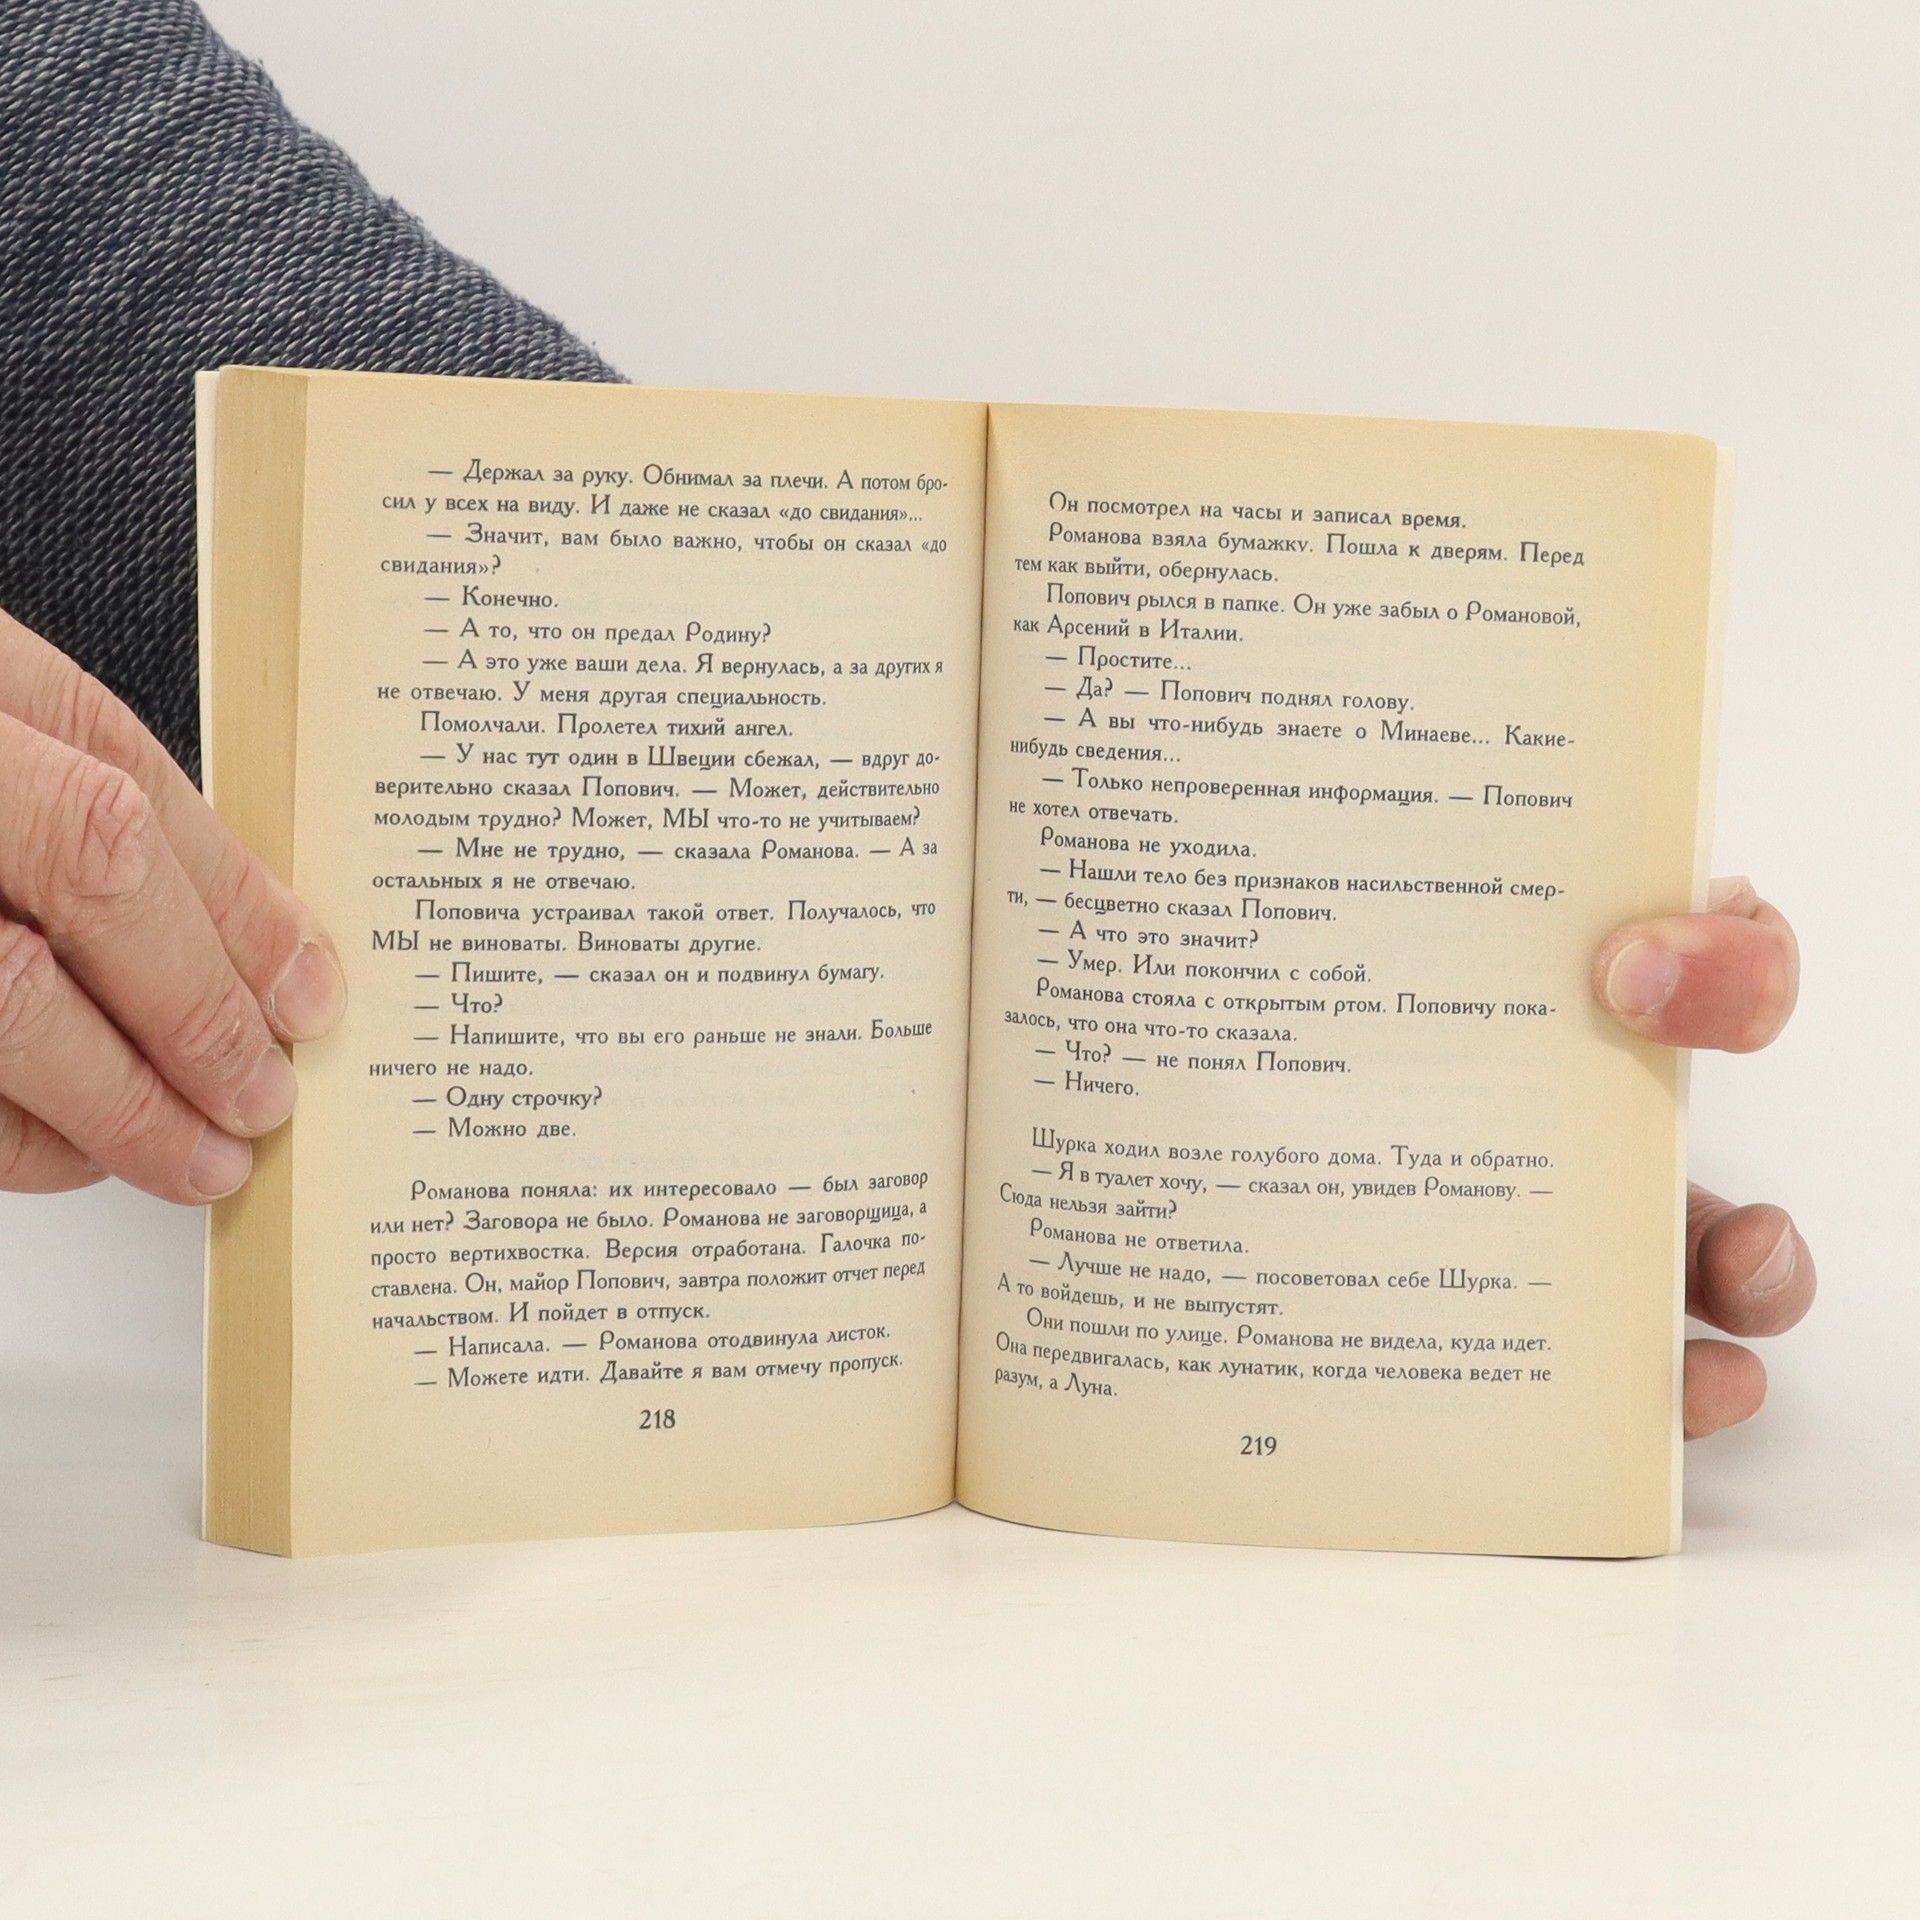 — Держал за руку. Обнимал за плечи. А потом бро-
сил у всех на виду. И даже не сказал «до свидания»...
— Значит, вам было важно, чтобы он сказал «до
свидания»?
— Конечно.
— А то, что он предал Родину?
— А это уже ваши дела. Я вернулась, а за других я
не отвечаю. У меня другая специальность.
Помолчали. Пролетел тихий ангел.
— У нас тут один в Швеции сбежал, — вдруг до-
верительно сказал Попович. — Может, действительно
молодым трудно? Может, МЫ что-то не учитываем?
— Мне не трудно, — сказала Романова. — А за
остальных я не отвечаю.
Поповича устраивал такой ответ. Получалось, что
МЫ не виноваты. Виноваты другие.
— Пишите, — сказал он и подвинул бумагу.
— Что?
— Напишите, что вы его раньше не знали. Больше
ничего не надо.
— Одну строчку?
— Можно две.
Романова поняла: их интересовало — был заговор
или нет? Заговора не было. Романова не заговорщица, а
просто вертихвостка. Версия отработана. Галочка по-
ставлена. Он, майор Попович, завтра положит отчет перед
начальством. И пойдет в отпуск.
— Написала. — Романова отодвинула листок.
— Можете идти. Давайте я вам отмечу пропуск.
218
Он посмотрел на часы и записал время.
Романова взяла бумажку. Пошла к дверям. Перед
тем как выйти, обернулась.
Попович рылся в папке. Он уже забыл о Романовой,
как Арсений в Италии.
— Простите...
— Да? — Попович поднял голову.
— А вы что-нибудь знаете о Минаеве... Какие-
нибудь сведения...
— Только непроверенная информация. — Попович
не хотел отвечать.
Романова не уходила.
— Нашли тело без признаков насильственной смер-
ти, — бесцветно сказал Попович.
— А что это значит?
— Умер. Или покончил с собой.
Романова стояла с открытым ртом. Поповичу пока-
залось, что она что-то сказала.
— Что? — не понял Попович.
— Ничего.
Шурка ходил возле голубого дома. Туда и обратно.
— Я в туалет хочу, — сказал он, увидев Романову. —
Сюда нельзя зайти?
Романова не ответила.
— Лучше не надо, — посоветовал себе Шурка. —
А то войдешь, и не выпустят.
Они пошли по улице. Романова не видела, куда идет.
Она передвигалась, как лунатик, когда человека ведет не
разум, а Луна.
219